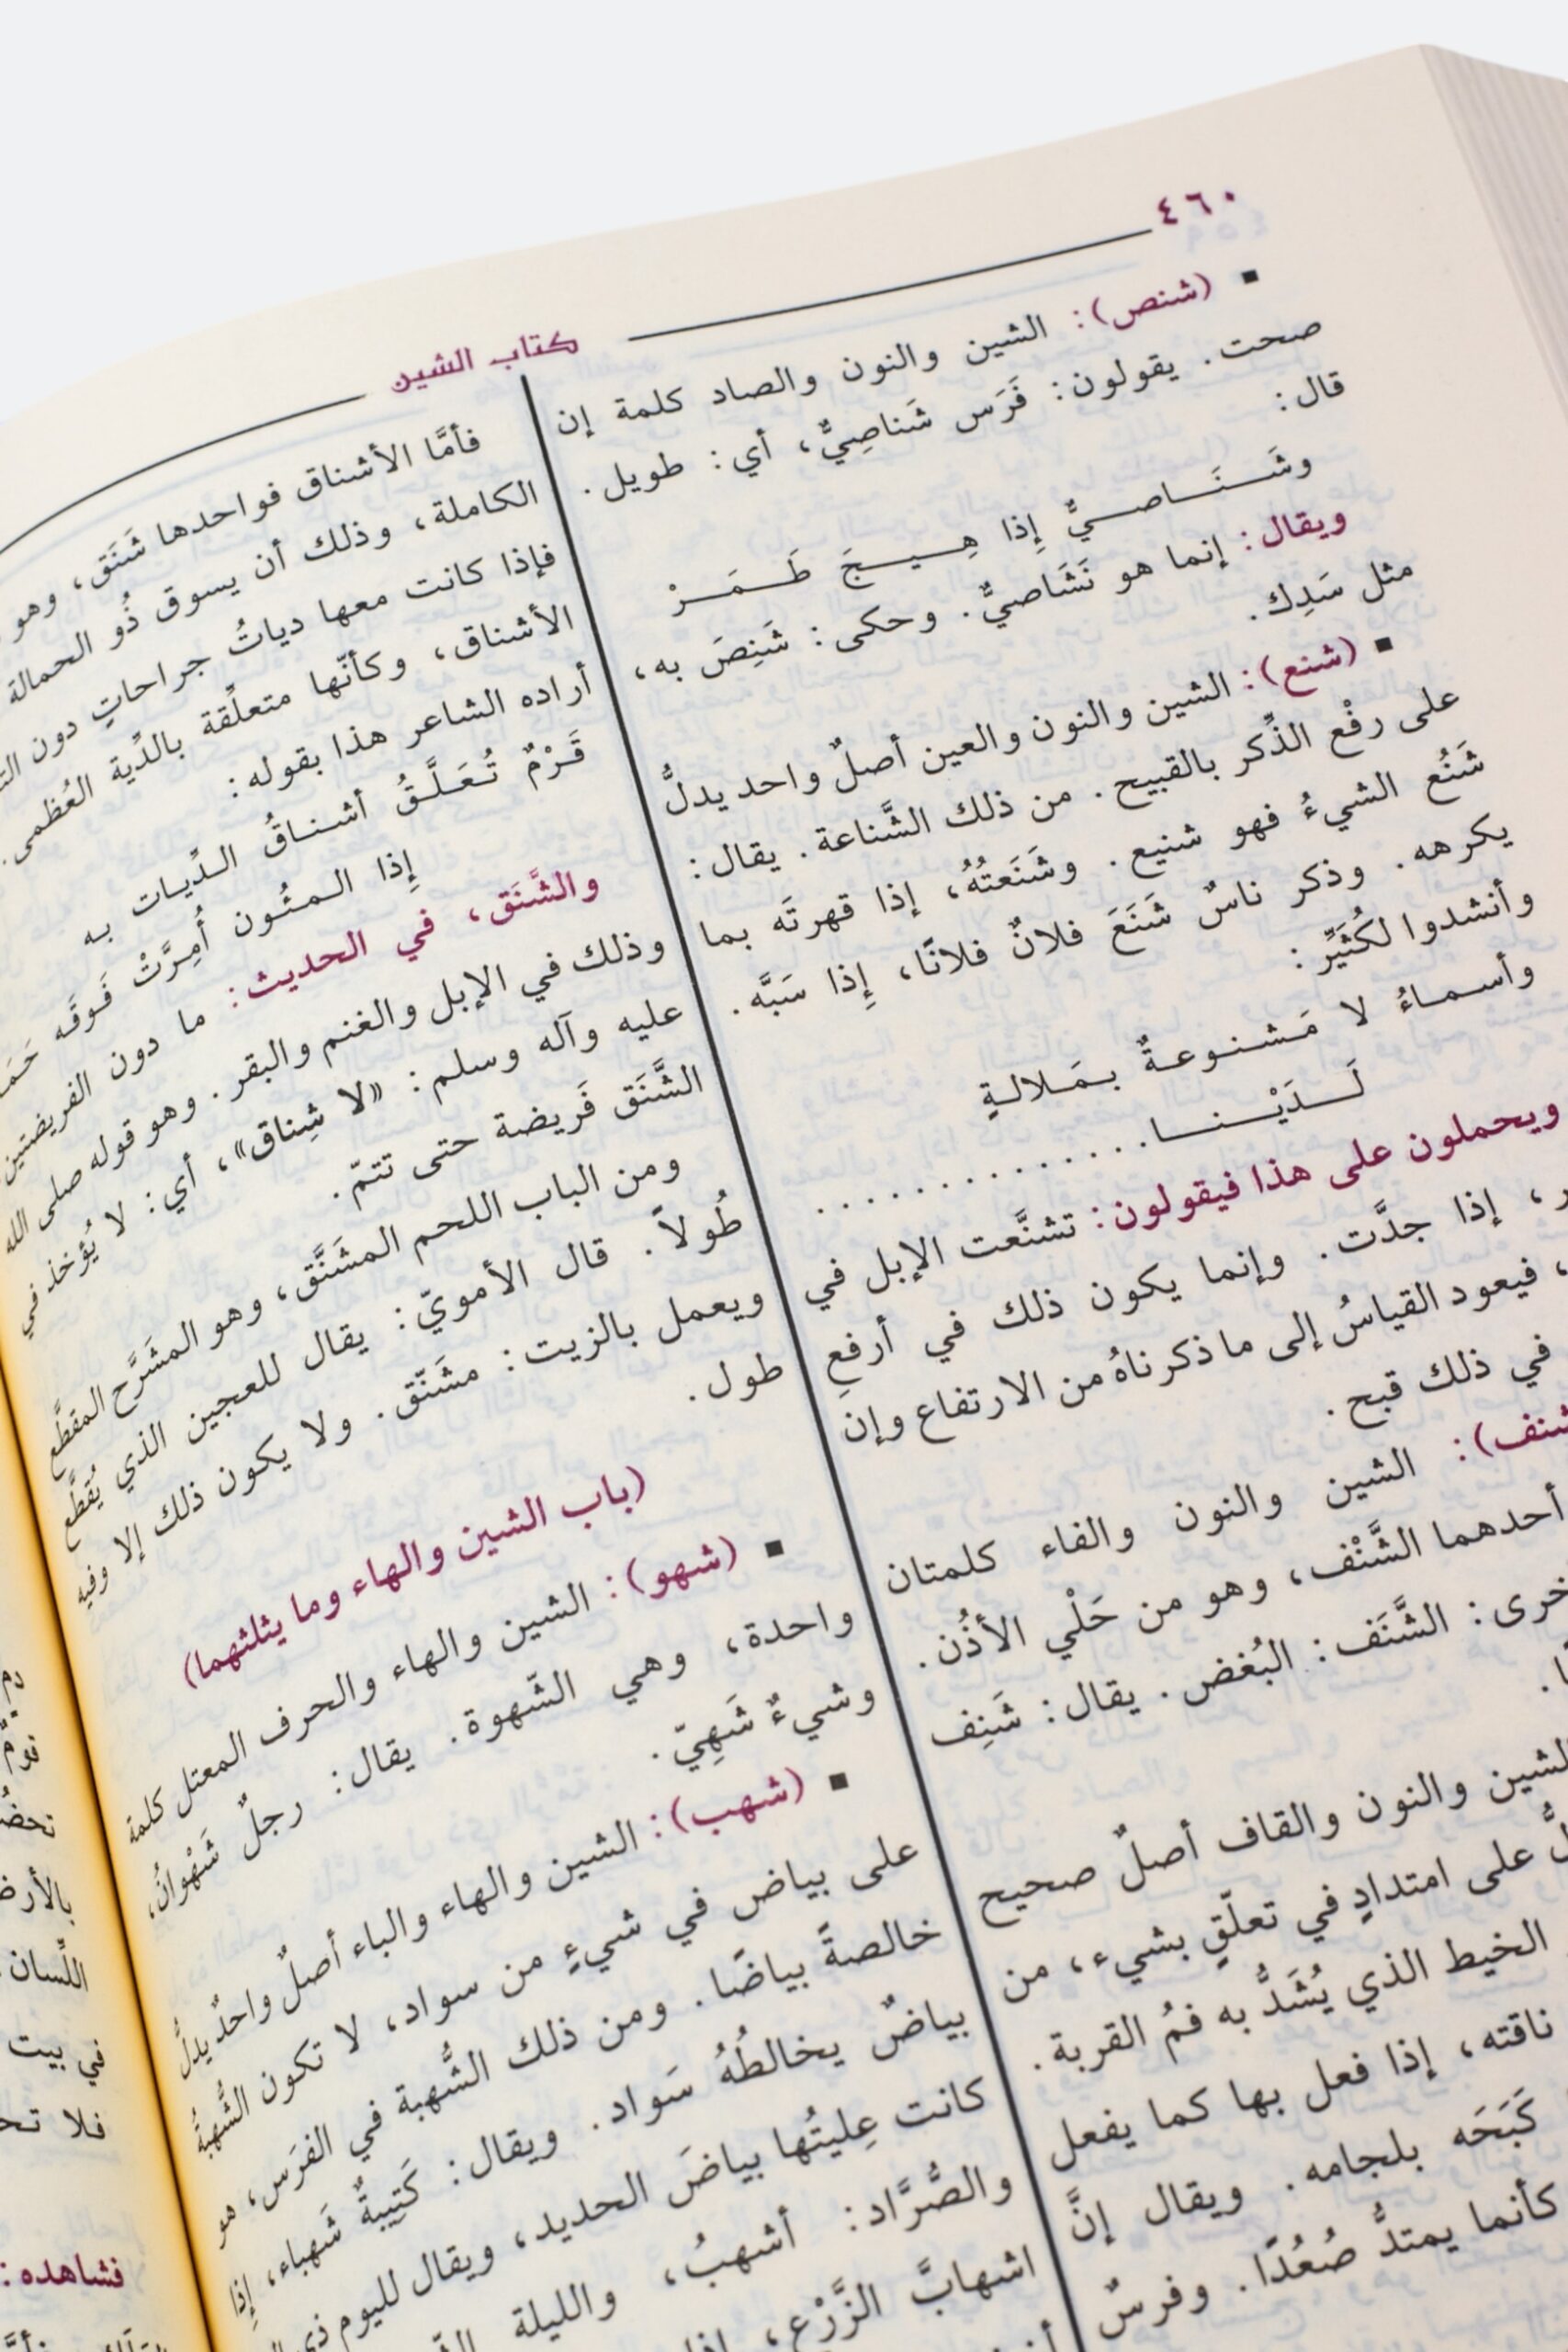 ٤٦٠
كتاب الشين
▪ (شنص): الشين والنون والصاد كلمة إن
صحت. يقولون: فَرَس شَناصِيٌّ، أي: طويل.
قال:
وشَـنَـاصـيٌّ إِذا هِـيـجَ طَـمَـرْ
ويقال: إنما هو نَشَاصيٌّ. وحكى: شَنِصَ به،
مثل سَدِك.
▪ (شنع): الشين والنون والعين أصلٌ واحد يدلُّ
على رفْع الذِّكر بالقبيح. من ذلك الشَّناعة. يقال:
شَنُع الشيءُ فهو شنيع. وشَنَعتُهُ، إذا قهرتَه بما
يكرهه. وذكر ناسٌ شَنَعَ فلانٌ فلانًا، إِذا سَبَّه.
وأنشدوا لكُثَيِّر:
وأسـمـاءُ لا مَـشـنـوعـةٌ بـمَـلالـةٍ
لَـدَيْـنـا..............
ويحملون على هذا فيقولون: تشنَّعت الإبل في
إذا جدَّت. وإنما يكون ذلك في أرفعِ
، فيعود القياسُ إلى ما ذكرناهُ من الارتفاع وإن
في ذلك قبح.
شنف): الشين والنون والفاء كلمتان
أحدهما الشَّنْف، وهو من حَلْي الأذُن.
الشَّنَف: البُغض. يقال: شَنِف
الشين والنون والقاف أصلٌ صحيح
على امتدادٍ في تعلّقٍ بشيء، من
الخيط الذي يُشَدُّ به فمُ القربة.
ناقته، إذا فعل بها كما يفعل
كَبَحَه بلجامه. ويقال إنَّ
كأنما يمتدُّ صُعُدًا. وفرسٌ
فأمَّا الأشناق فواحدها شَنَق، وهو
الكاملة، وذلك أن يسوق ذُو الحمالة
فإذا كانت معها دياتُ جراحاتٍ دون
الأشناق، وكأنّها متعلِّقة بالدِّية العُظمى.
أراده الشاعر هذا بقوله:
قَـرْمٌ تُـعَـلَّـقُ أشـنـاقُ الـدِّيـات بـه
إِذا الـمـئُـون أُمِـرَّتْ فَـوقَـه
والشَّنَق، في الحديث: ما دون الفريضتين
وذلك في الإبل والغنم والبقر. وهو قوله صلى الله
عليه وآله وسلم: «لا شِناق»، أي: لا يُؤخذ في
الشَّنَق فَريضة حتى تتمّ.
ومن الباب اللحم المشَنَّق، وهو المشَرَّح المقطَّع
طُولاً. قال الأمويّ: يقال للعجين الذي يُقطَّع
ويعمل بالزيت: مشَنّق. ولا يكون ذلك إلا وفيه
طول.
(باب الشين والهاء وما يثلثهما)
▪ (شهو): الشين والهاء والحرف المعتل كلمة
واحدة، وهي الشّهوة. يقال: رجلٌ شَهْوانُ،
وشيءٌ شَهِيّ.
▪ (شهب): الشين والهاء والباء أصلٌ واحدٌ يدلُّ
على بياض في شيءٍ من سواد، لا تكون الشُّهبةُ
خالصةً بياضًا. ومن ذلك الشُّهبة في الفرَس، هو
بياضٌ يخالطُهُ سَواد. ويقال: كَتِيبةٌ شَهباء، إِذا
كانت عِليتُها بياضَ الحديد، ويقال لليوم
والصُّرَّاد: أشهبُ، والليلة
اشهابَّ الزَّرْع،
تحض
اللِّسان
في بيت
فلا
فشاهده: